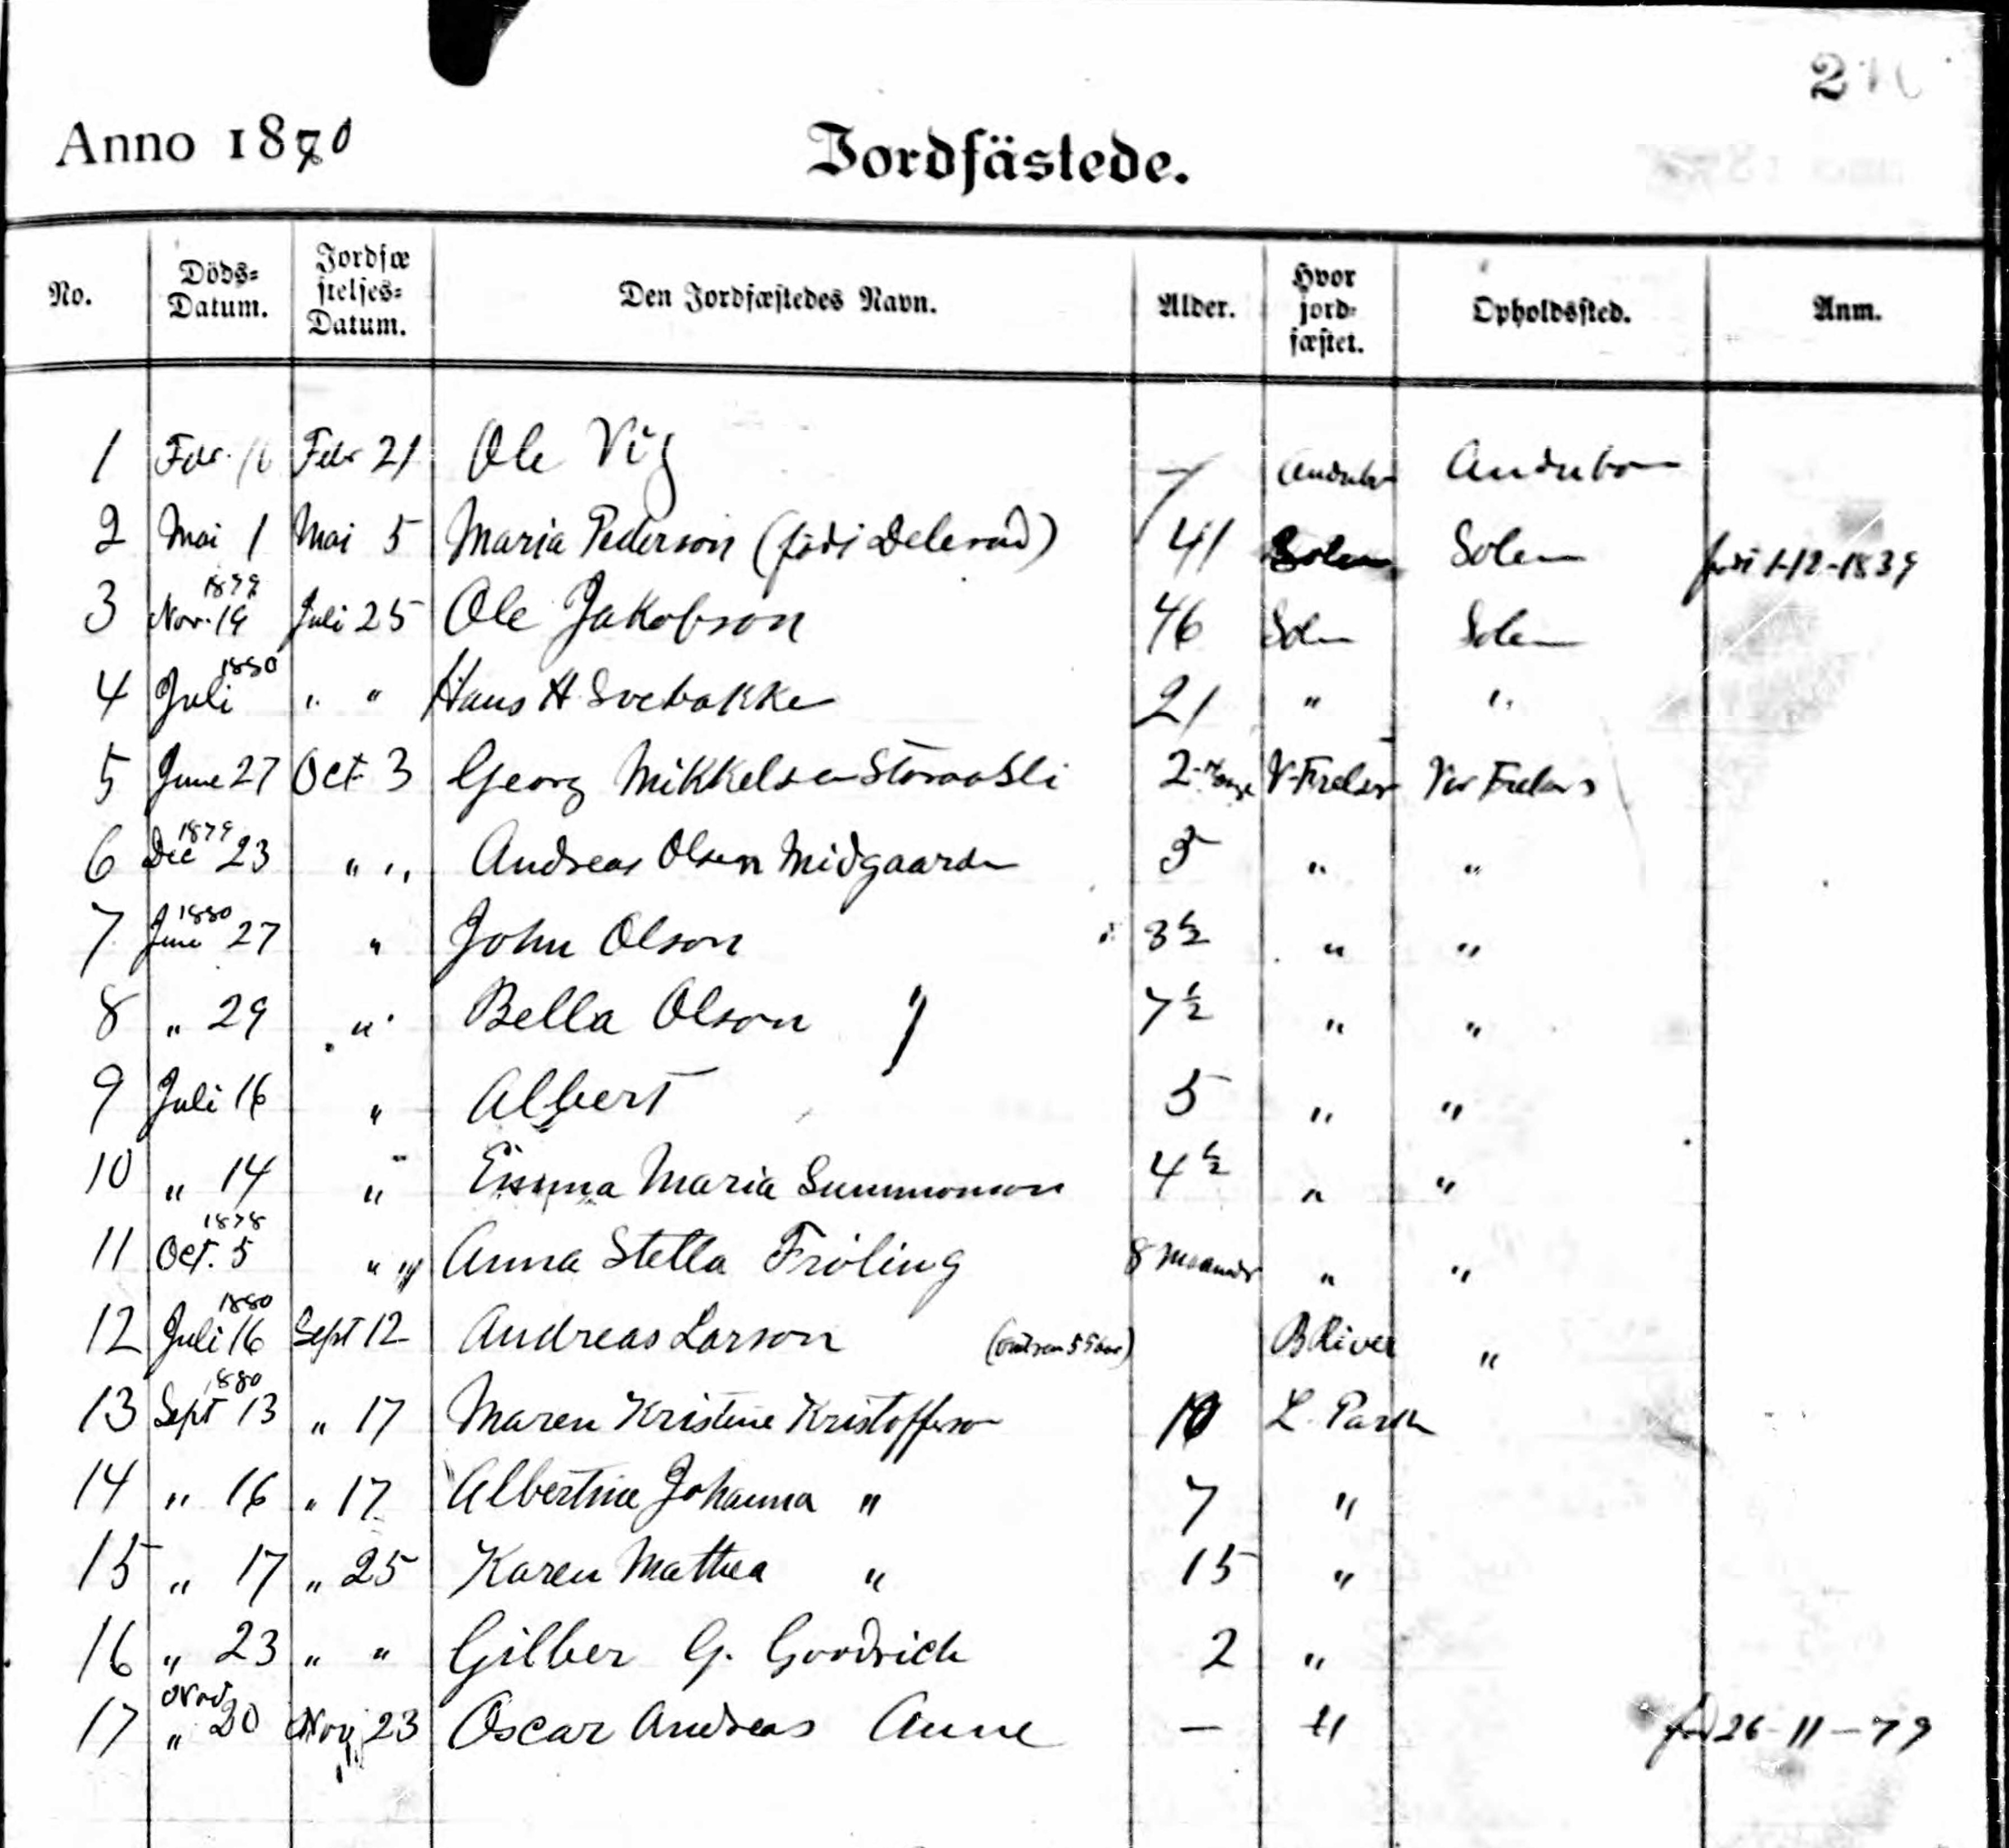 2
Anno 1880 Jordfästede.
No. Döds-Datum. Jordfæstelses-Datum. Den Jordfæstedes Navn. Alder. Hvor jordfæstet. Opholdssted. Anm.
1 Febr. Febr 21 Ole Vig Audubo Audubon
2 Mai 1 Mai 5 Maria Pederson 41 Solem Solem 1-12-1839
3 1879 Nov. 19 Juli 25 Ole Jakobson 46 Solem Solem
4 1880 Juli " " Hans H Svebakke 21 " "
5 June 27 Oct 3 Georg Mikkelsen Storaasli 2 V Frelser Vor Frelsers
6 1879 Dec 23 " " Andreas Olsen Midgaarden " "
7 1880 June 27 " John Olson 3½ " "
8 " 29 " Bella Olson 7½ " "
9 Juli 16 " Albert 5 " "
10 " 14 " Emma Maria Summonson 4½ " "
11 1878 Oct. 5 " " Anna Stella Fröling 8 Maaneder " "
12 1880 Juli 16 Sept 12 Andreas Larson B River "
13 1880 Sept 13 " 17 Maren Kristine Kristofferson 10 L. Park
14 " 16 " 17 Albertine Johanna " 7 "
15 " 17 " 25 Karen Mathea " 15 "
16 " 23 " " Gilber G. Goodrich 2 "
17 Nov " 20 Nov 23 Oscar Andreas Aune — " 26-11-79